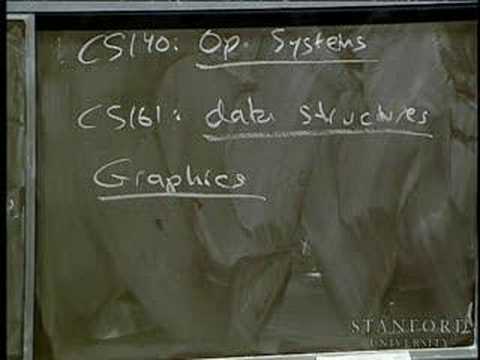 CS140: Op. Systems
CS161: data structures
Graphics
STANFORD
UNIVERSITY